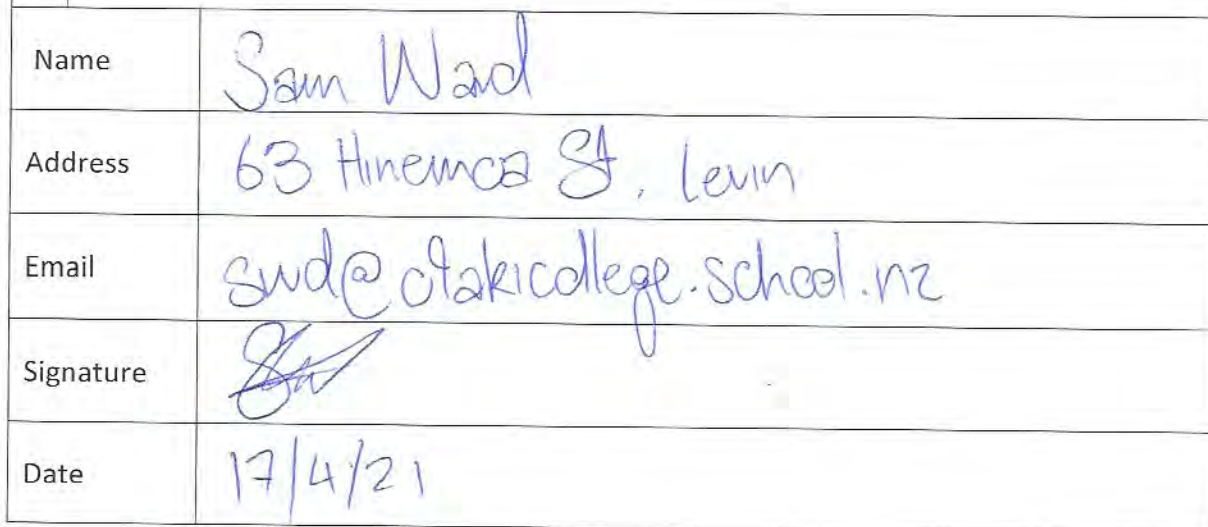 Name Sam Ward
Address 63 Hinemoa St, Levin
Email swd@otakicollege.school.nz
Signature
Date 17/4/21